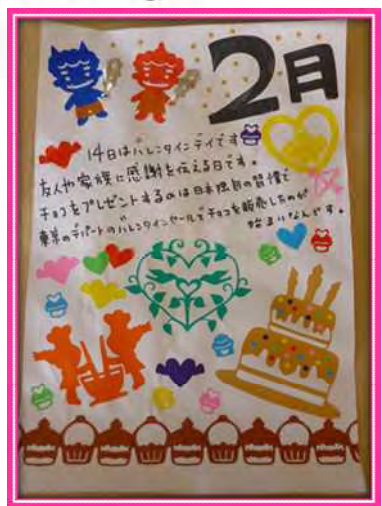 2月
14日はバレンタインデイです
友人や家族に感謝を伝える日です。
チョコをプレゼントするのは日本独自の習慣で
東京のデパートのバレンタインセールでチョコを販売したのが
始まりなんです。